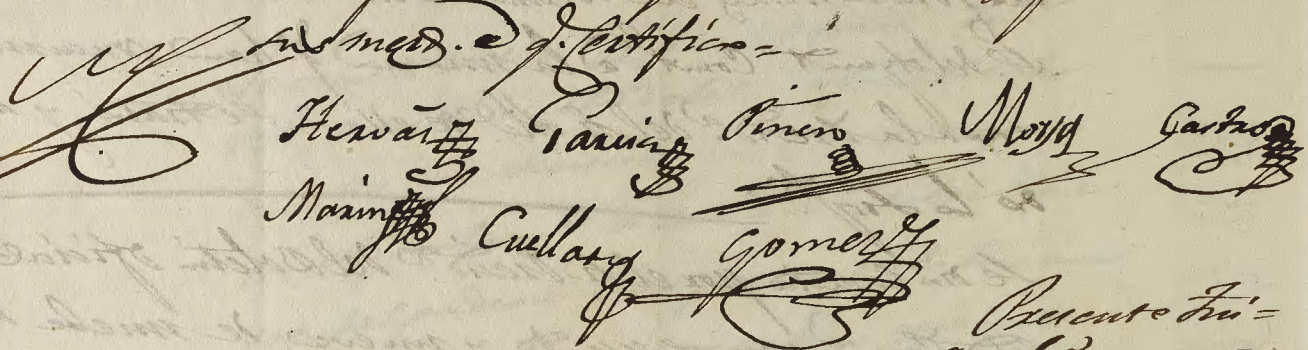 sus merd. e q. Certifico =
Hervás Garcia Pinero Moya Castro
Marin Cuellar Gomez
Presente Fui =